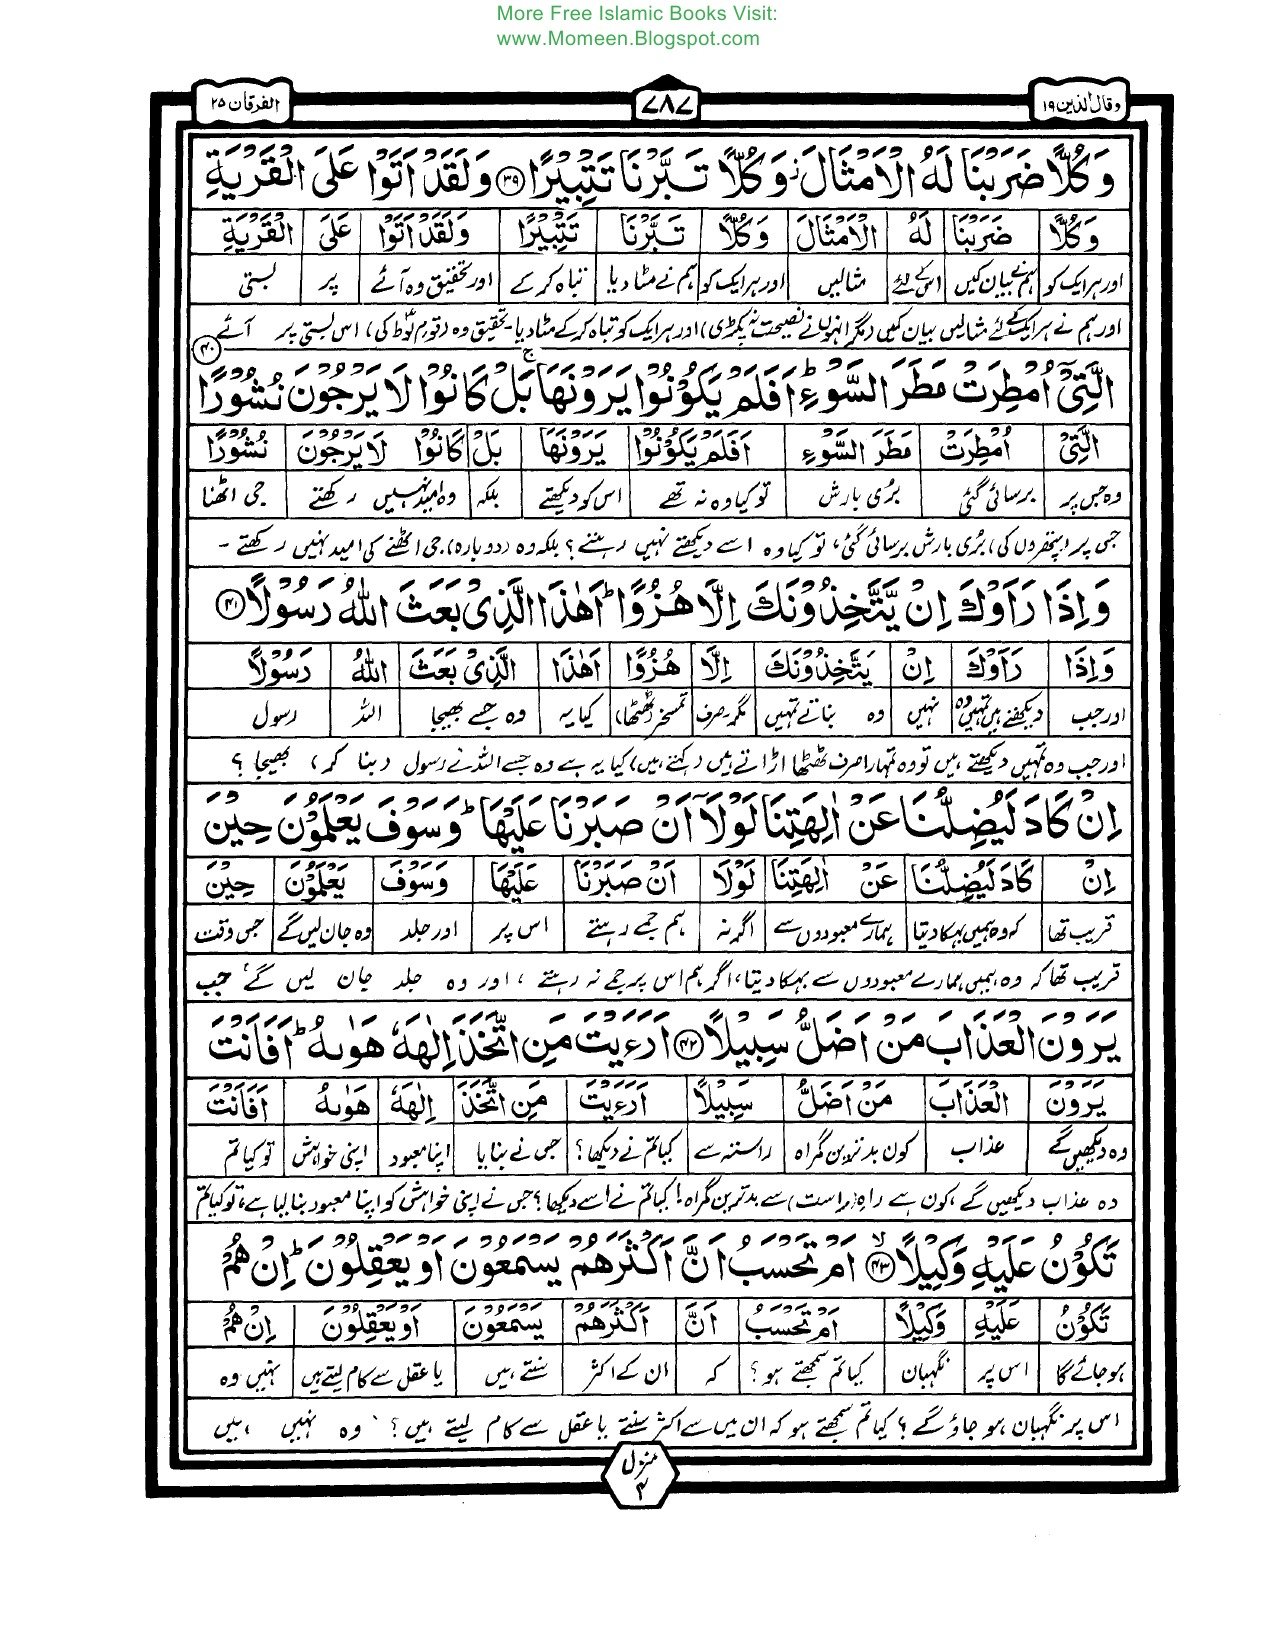 More Free Islamic Books Visit:
www.Momeen.Blogspot.com
وقال الذین ۱۹
۷۸۷
الفرقان ۲۵
وَكُلًّا ضَرَبْنَا لَهُ الْاَمْثَالَ ۫ وَكُلًّا تَبَّرْنَا تَتْبِيْرًا ﴿۳۹﴾ وَلَقَدْ اَتَوْا عَلَى الْقَرْيَةِ
وَكُلًّا ضَرَبْنَا لَهُ الْاَمْثَالَ وَكُلًّا تَبَّرْنَا تَتْبِيْرًا وَلَقَدْ اَتَوْا عَلَى الْقَرْيَةِ
اور ہر ایک کو ہم نے بیان کیں اس کے لئے مثالیں اور ہر ایک کو ہم نے مٹا دیا تباہ کر کے اور تحقیق وہ آئے پر بستی
اور ہم نے ہر ایک کے لئے مثالیں بیان کیں (مگر انہوں نے نصیحت نہ پکڑی) اور ہر ایک کو تباہ کر کے مٹا دیا۔ تحقیق وہ (قوم لوط کی) اس بستی پر آئے
الَّتِيْٓ اُمْطِرَتْ مَطَرَ السَّوْءِ ؕ اَفَلَمْ يَكُوْنُوْا يَرَوْنَهَا ۚ بَلْ كَانُوْا لَا يَرْجُوْنَ نُشُوْرًا ﴿۴۰﴾
الَّتِيْٓ اُمْطِرَتْ مَطَرَ السَّوْءِ اَفَلَمْ يَكُوْنُوْا يَرَوْنَهَا بَلْ كَانُوْا لَا يَرْجُوْنَ نُشُوْرًا
وہ جس پر برسائی گئی بُری بارش تو کیا وہ نہ تھے اس کو دیکھتے بلکہ وہ امید نہیں رکھتے جی اٹھنا
جس پر (پتھروں کی) بُری بارش برسائی گئی، تو کیا وہ اسے دیکھتے نہیں رہتے؟ بلکہ وہ (دوبارہ) جی اٹھنے کی امید نہیں رکھتے۔
وَاِذَا رَاَوْكَ اِنْ يَّتَّخِذُوْنَكَ اِلَّا هُزُوًا ؕ اَهٰذَا الَّذِيْ بَعَثَ اللّٰهُ رَسُوْلًا ﴿۴۱﴾
وَاِذَا رَاَوْكَ اِنْ يَتَّخِذُوْنَكَ اِلَّا هُزُوًا اَهٰذَا الَّذِيْ بَعَثَ اللّٰهُ رَسُوْلًا
اور جب دیکھتے ہیں تمہیں وہ نہیں وہ بناتے تمہیں مگر۔صرف تمسخر (ٹھٹھا) کیا یہ وہ جسے بھیجا اللہ رسول
اور جب وہ تمہیں دیکھتے ہیں تو وہ تمہارا صرف ٹھٹھا اڑاتے ہیں (کہتے ہیں) کیا یہ ہے وہ جسے اللہ نے رسول (بنا کر) بھیجا؟
اِنْ كَادَ لَيُضِلُّنَا عَنْ اٰلِهَتِنَا لَوْلَآ اَنْ صَبَرْنَا عَلَيْهَا ؕ وَسَوْفَ يَعْلَمُوْنَ حِيْنَ
اِنْ كَادَ لَيُضِلُّنَا عَنْ اٰلِهَتِنَا لَوْلَا اَنْ صَبَرْنَا عَلَيْهَا وَسَوْفَ يَعْلَمُوْنَ حِيْنَ
قریب تھا کہ وہ ہمیں بہکا دیتا ہمارے معبودوں سے اگر نہ ہم جمے رہتے اس پر اور جلد وہ جان لیں گے جس وقت
قریب تھا کہ وہ ہمیں ہمارے معبودوں سے بہکا دیتا، اگر ہم اس پر جمے نہ رہتے، اور وہ جلد جان لیں گے، جب
يَرَوْنَ الْعَذَابَ مَنْ اَضَلُّ سَبِيْلًا ﴿۴۲﴾ اَرَءَيْتَ مَنِ اتَّخَذَ اِلٰهَهٗ هَوٰىهُ ؕ اَفَاَنْتَ
يَرَوْنَ الْعَذَابَ مَنْ اَضَلُّ سَبِيْلًا اَرَءَيْتَ مَنِ اتَّخَذَ اِلٰهَهٗ هَوٰىهُ اَفَاَنْتَ
وہ دیکھیں گے عذاب کون بدترین گمراہ راستہ سے کیا تم نے دیکھا؟ جس نے بنایا اپنا معبود اپنی خواہش تو کیا تم
وہ عذاب دیکھیں گے، کون ہے راہِ (راست) سے بدترین گمراہ! کیا تم نے اسے دیکھا؟ جس نے اپنی خواہش کو اپنا معبود بنا لیا ہے، تو کیا تم
تَكُوْنُ عَلَيْهِ وَكِيْلًا ﴿۴۳﴾ۙ اَمْ تَحْسَبُ اَنَّ اَكْثَرَهُمْ يَسْمَعُوْنَ اَوْ يَعْقِلُوْنَ ؕ اِنْ هُمْ
تَكُوْنُ عَلَيْهِ وَكِيْلًا اَمْ تَحْسَبُ اَنَّ اَكْثَرَهُمْ يَسْمَعُوْنَ اَوْ يَعْقِلُوْنَ اِنْ هُمْ
ہو جائے گا اس پر نگہبان کیا تم سمجھتے ہو؟ کہ ان کے اکثر سنتے ہیں یا عقل سے کام لیتے ہیں نہیں وہ
اس پر نگہبان ہو جاؤ گے؟ کیا تم سمجھتے ہو کہ ان میں سے اکثر سنتے یا عقل سے کام لیتے ہیں؟ وہ نہیں ہیں
منزل ۴